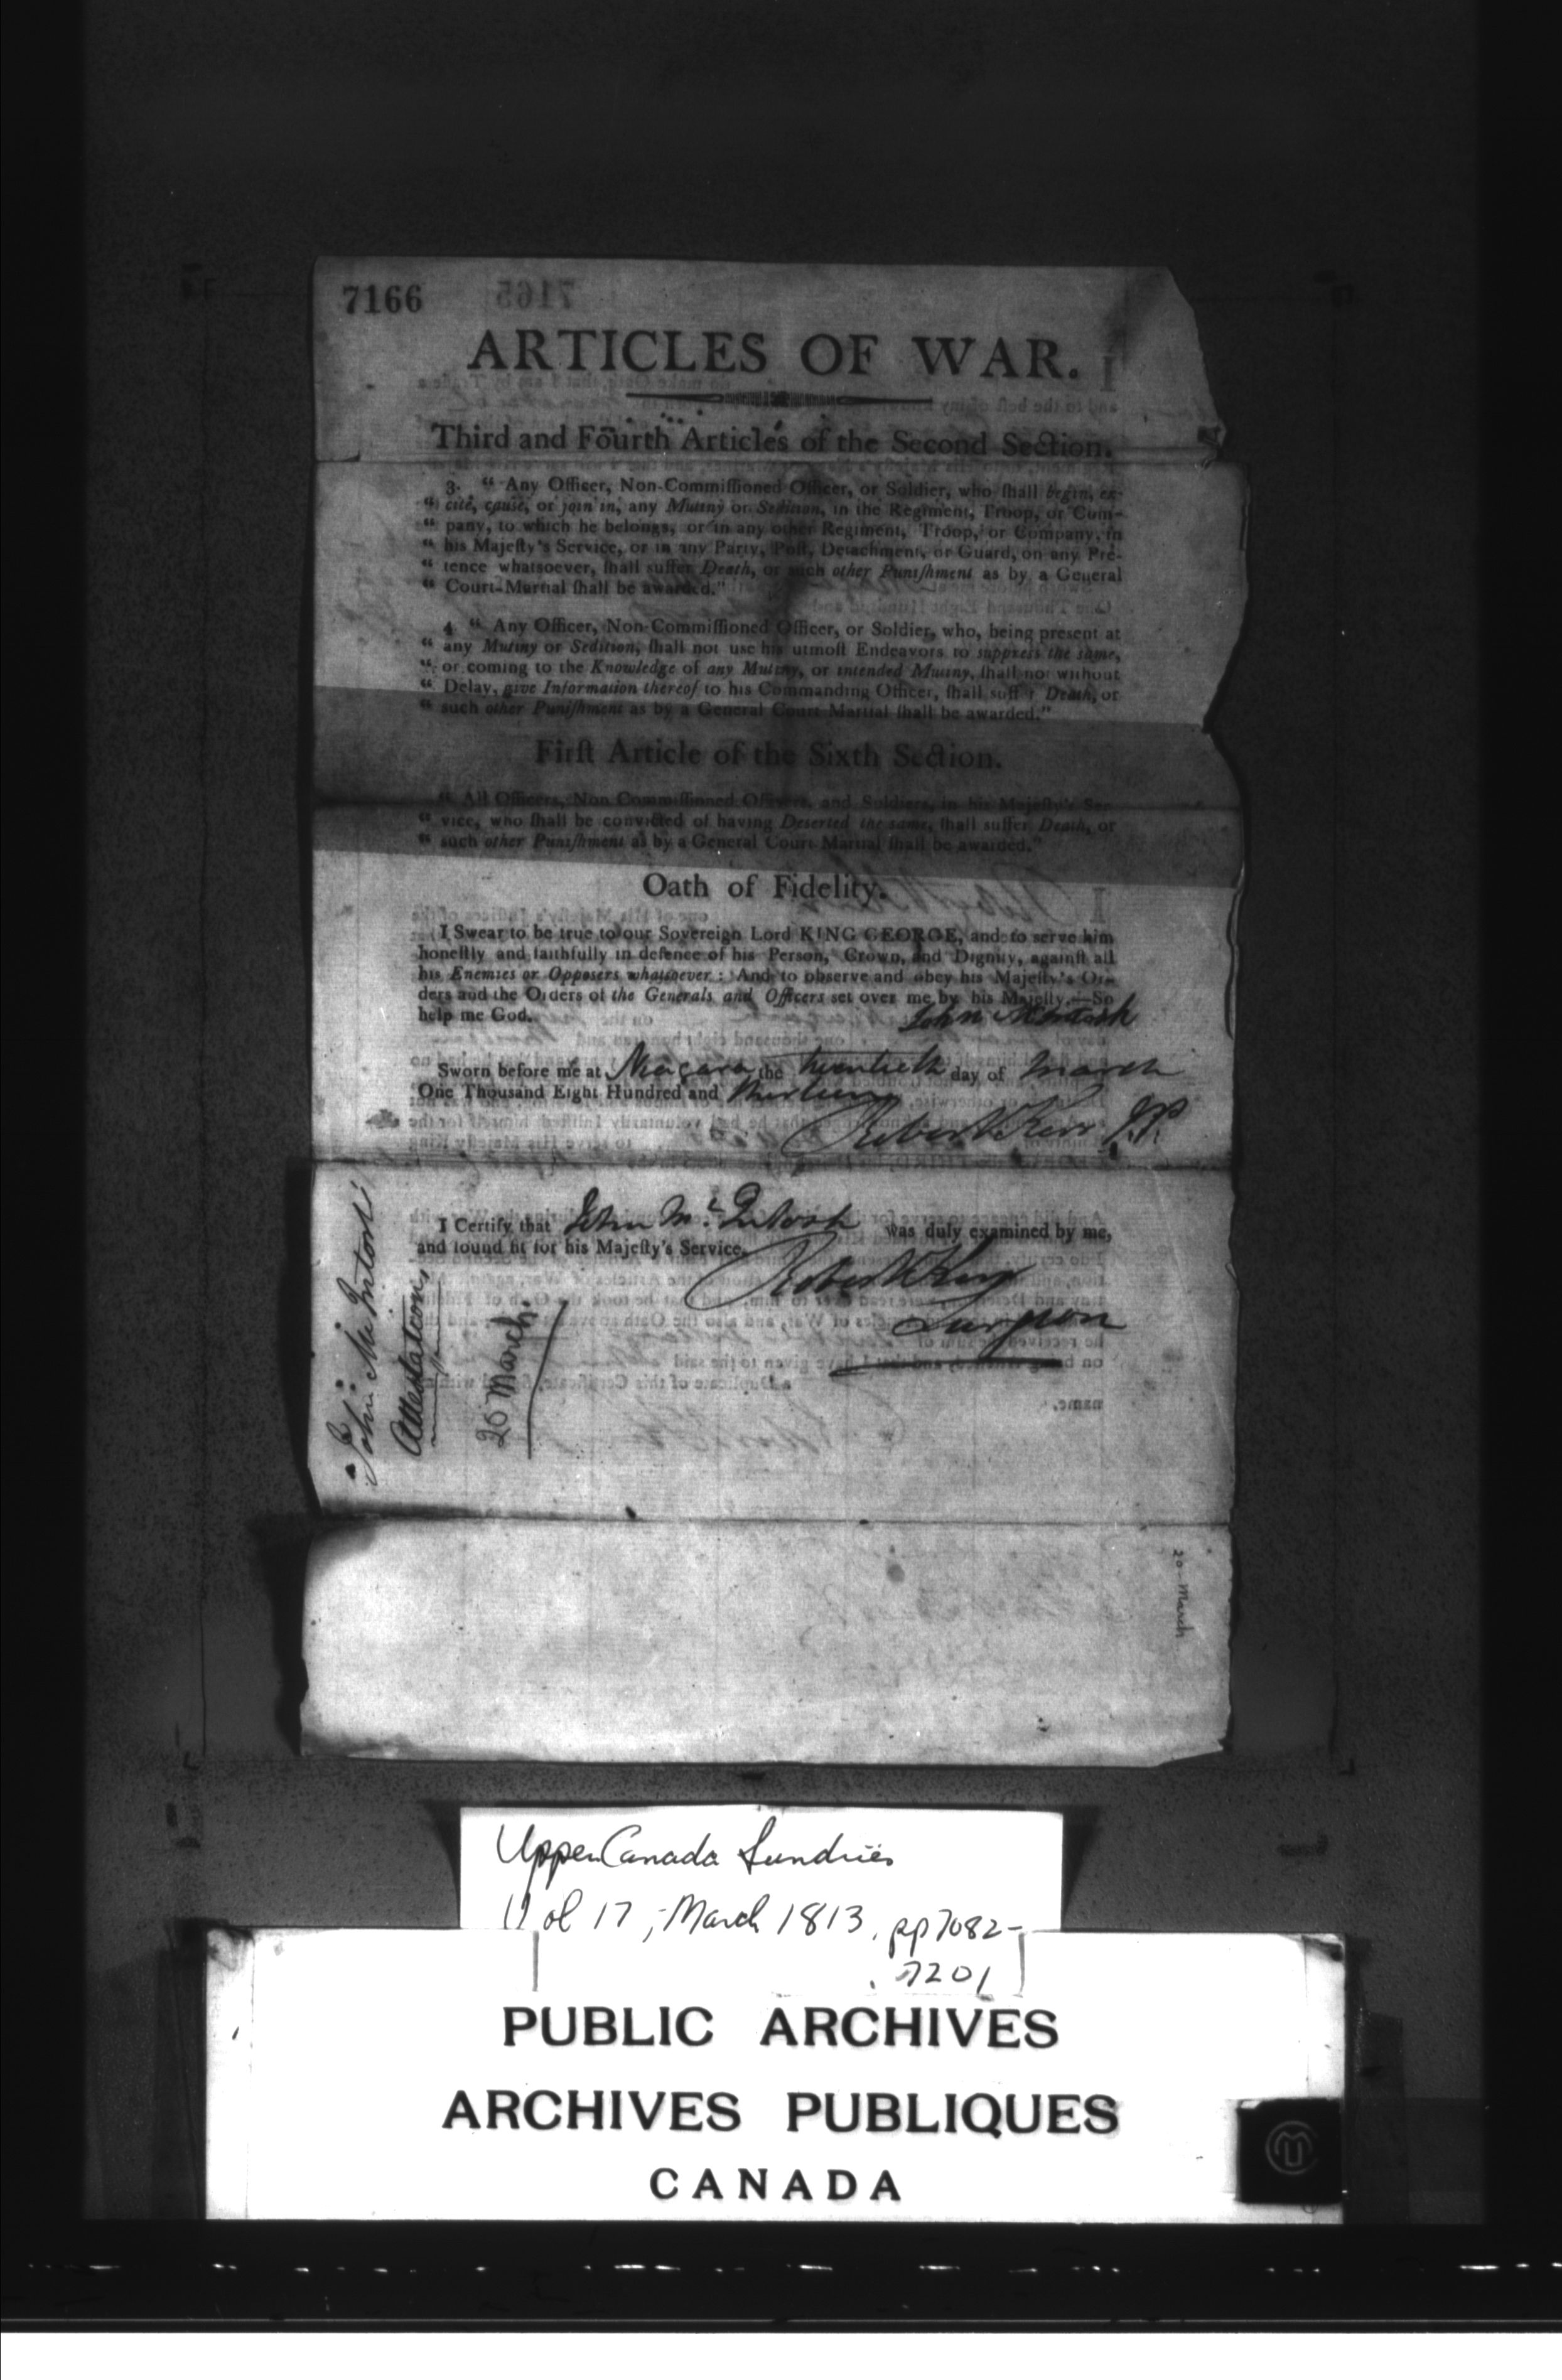 7166
ARTICLES OF WAR.
Third and Fourth Articles of the Second Section.
3. “ Any Officer, Non-Commiſſioned Officer, or Soldier, who ſhall begin, ex-
“ cite, cauſe, or join in, any Mutiny or Sedition, in the Regiment, Troop, or Com-
“ pany, to which he belongs, or in any other Regiment, Troop, or Company, in
“ his Majeſty's Service, or in any Party, Poſt, Detachment, or Guard, on any Pre-
“ tence whatsoever, ſhall suffer Death, or such other Puniſhment as by a General
“ Court-Martial ſhall be awarded.”
4 “ Any Officer, Non-Commiſſioned Officer, or Soldier, who, being present at
“ any Mutiny or Sedition, ſhall not use his utmoſt Endeavors to suppress the same,
“ or coming to the Knowledge of any Mutiny, or intended Mutiny, ſhall not without
“ Delay, give Information thereof to his Commanding Officer, ſhall suffer Death, or
“ such other Puniſhment as by a General Court Martial ſhall be awarded.”
Firſt Article of the Sixth Section.
“ All Officers, Non Commiſſioned Officers, and Soldiers, in his Majeſty's Ser-
“ vice, who ſhall be convicted of having Deserted the same, ſhall suffer Death, or
“ such other Puniſhment as by a General Court Martial ſhall be awarded.”
Oath of Fidelity.
I Swear to be true to our Sovereign Lord KING GEORGE, and to serve him
honeſtly and faithfully in defence of his Person, Crown, and Dignity, againſt all
his Enemies or Opposers whatsoever : And to observe and obey his Majeſty's Or-
ders and the Orders of the Generals and Officers set over me by his Majeſty.—So
help me God.
John McIntosh
Sworn before me at Niagara the twentieth day of March
One Thousand Eight Hundred and thirteen
Robert Kerr J.P.
I Certify that John McIntosh was duly examined by me,
and found fit for his Majeſty's Service.
Robert Kerr
Surgeon
John McIntosh
Attestation,
20 March.
20 March
Upper Canada Sundries
Vol 17, March 1813, pp 7082-
7201
PUBLIC ARCHIVES
ARCHIVES PUBLIQUES
CANADA